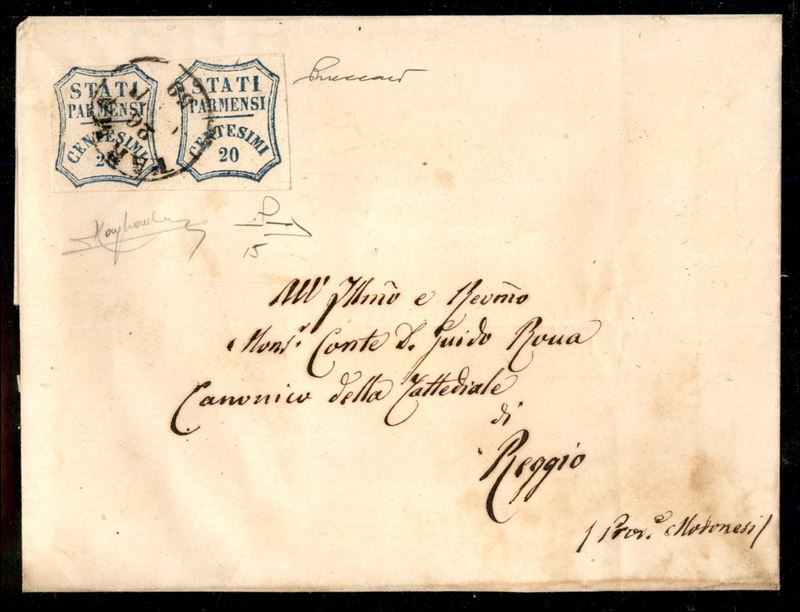 STATI
PARMENSI
CENTESIMI
20
STATI
PARMENSI
CENTESIMI
20
15
All' Illmo e Revmo
Monsr. Conte D. Guido Rocca
Canonico della Cattedrale
di
Reggio
/ Prov.e Modonesi /